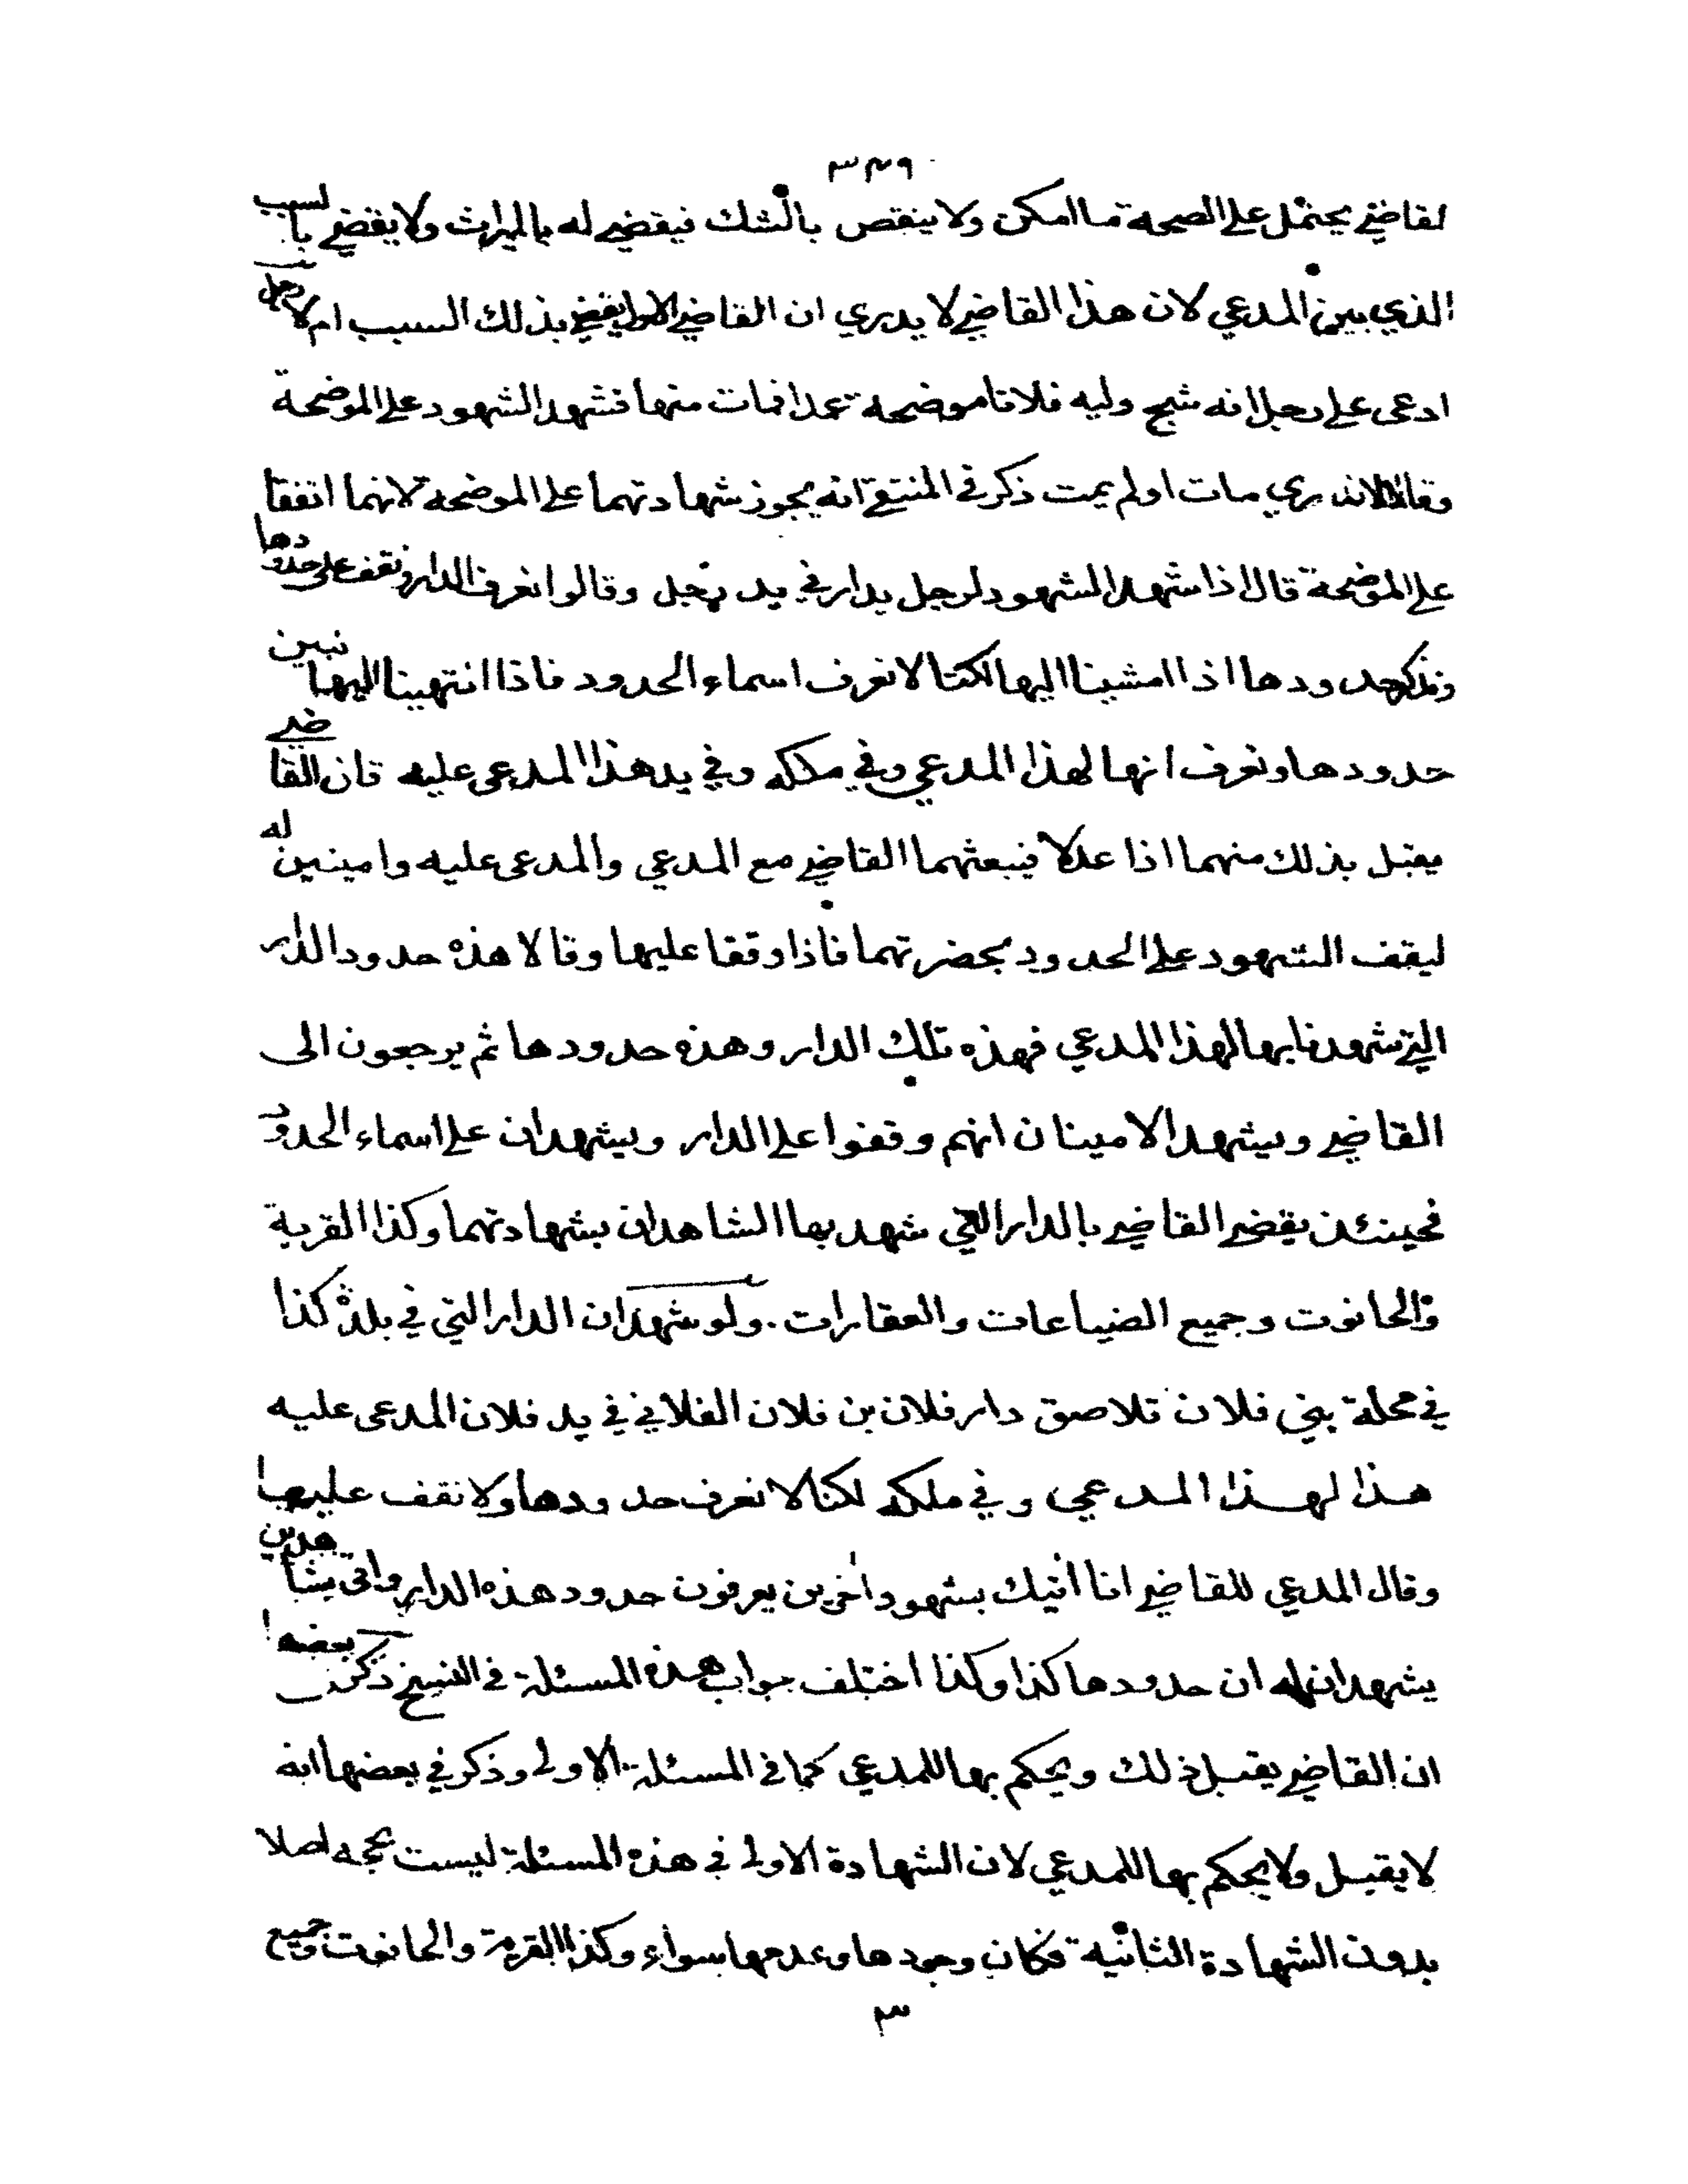 ٣٤٩
لقاضي يحتمل على الصحة ما امكن ولا ينقص بالشك فيقضي له بالميراث ولا يقضي بالسبب
الذي بين المدعي لان هذا القاضي لا يدري ان القاضي الاول يقضي بذلك السبب ام لا رجل
ادعى على رجل انه شج وليه فلانا موضحة عمدا فمات منها فشهد الشهود على الموضحة
وقالا لا ندري مات او لم يمت ذكر في المنتقى انه يجوز شهادتهما على الموضحة لانهما اتفقا
على الموضحة قال اذا شهد الشهود لرجل بدار في يد رجل وقالوا نعرف الدار ونقف على حدودها
ونذكر حدودها اذا امشينا اليها لكنا لا نعرف اسماء الحدود فاذا انتهينا اليها نبين
حدودها ونعرف انها لهذا المدعي وفي ملكه وفي يد هذا المدعى عليه فان القاضي
يقبل بذلك منهما اذا عدلا فيبعثهما القاضي مع المدعي والمدعى عليه وامينين له
ليقف الشهود على الحدود بحضرتهما فاذا وقفا عليها وقالا هذه حدود الدار
التي شهدنا بها لهذا المدعي فهذه تلك الدار وهذه حدودها ثم يرجعون الى
القاضي ويشهد الامينان انهم وقفوا على الدار ويشهدان على اسماء الحدود
فحينئذ يقضي القاضي بالدار التي شهد بها الشاهدان بشهادتهما وكذا القرية
والحانوت وجميع الضياعات والعقارات . ولو شهدا ان الدار التي في بلدة كذا
في محلة بني فلان تلاصق دار فلان بن فلان الفلاني في يد فلان المدعى عليه
هذا لهذا المدعي وفي ملكه لكنا لا نعرف حدودها ولا نقف عليها
وقال المدعي للقاضي انا اتيك بشهود اخرين يعرفون حدود هذه الدار واتى بشاهدين
يشهدان له ان حدودها كذا وكذا اختلف جواب هذه المسئلة في النسخ ذكر في بعضها
ان القاضي يقبل ذلك ويحكم بها للمدعي كما في المسئلة الاولى وذكر في بعضها انه
لا يقبل ولا يحكم بها للمدعي لان الشهادة الاولى في هذه المسئلة ليست بحجة اصلا
بدون الشهادة الثانية فكان وجودها وعدمها بسواء وكذا القرية والحانوت وجميع
٣